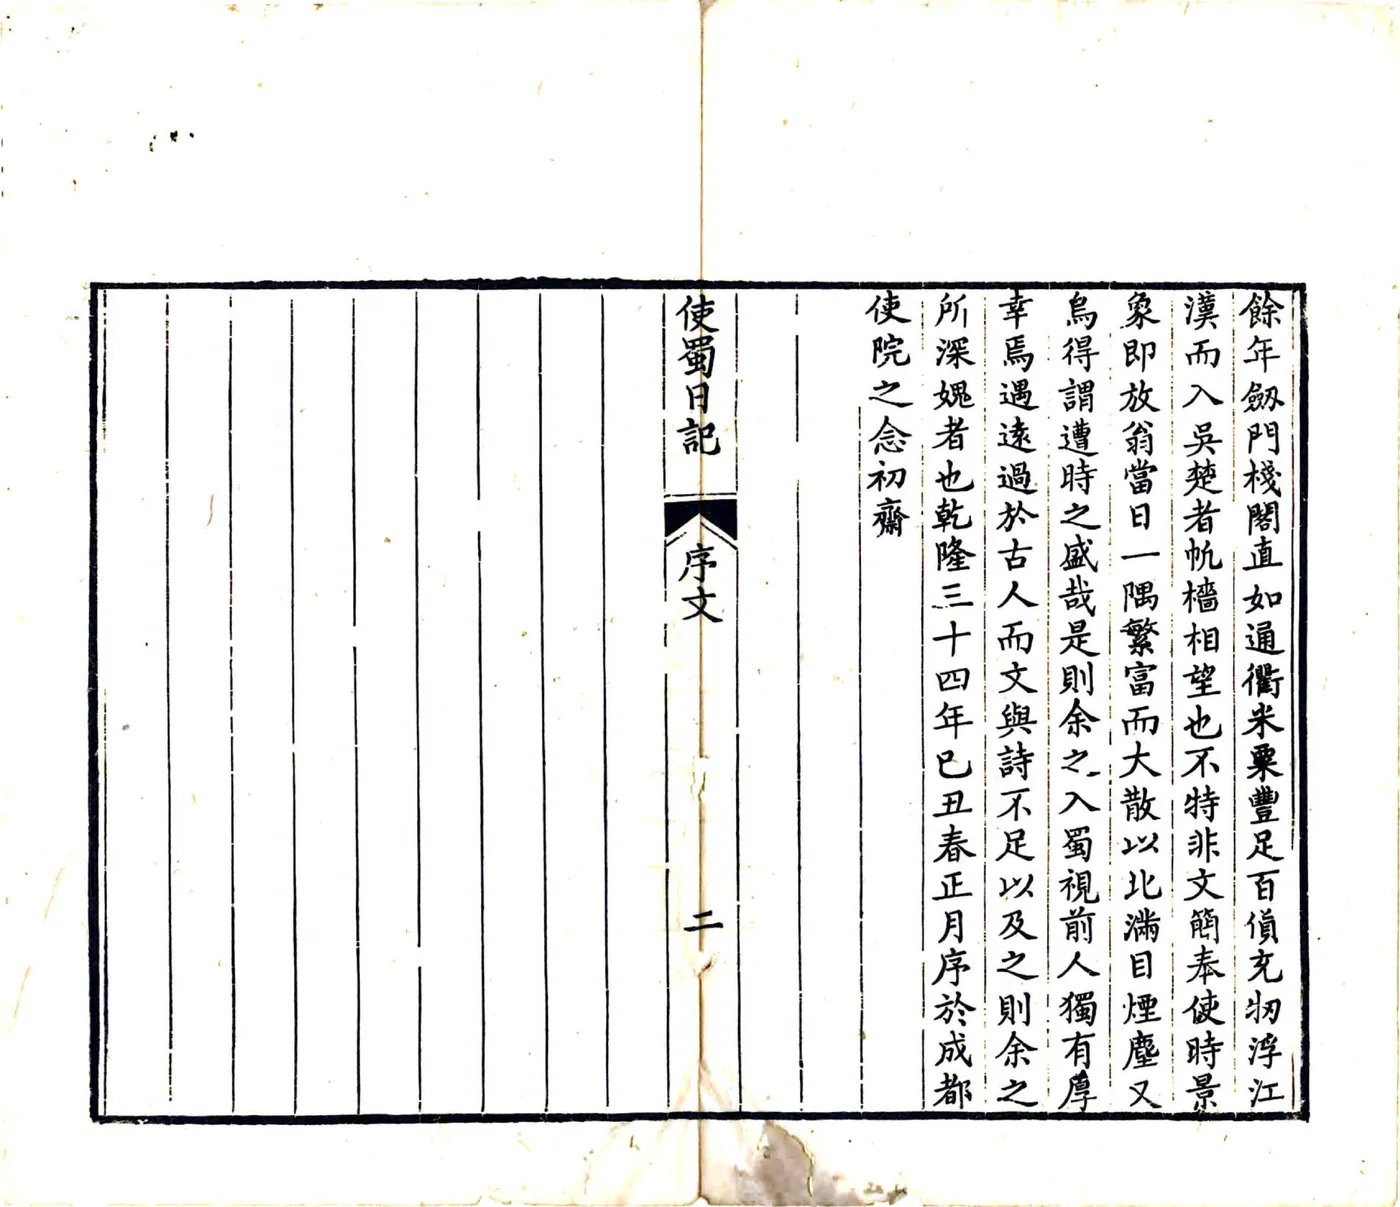 餘年劔門棧閣直如通衢米粟豐足百貨充牣浮江
漢而入吳楚者帆檣相望也不特非文簡奉使時景
象即放翁當日一隅繁富而大散以北滿目煙塵又
烏得謂遭時之盛哉是則余之入蜀視前人獨有厚
幸焉遇遠過於古人而文與詩不足以及之則余之
所深媿者也乾隆三十四年己丑春正月序於成都
使院之念初齋
使蜀日記
序文
二